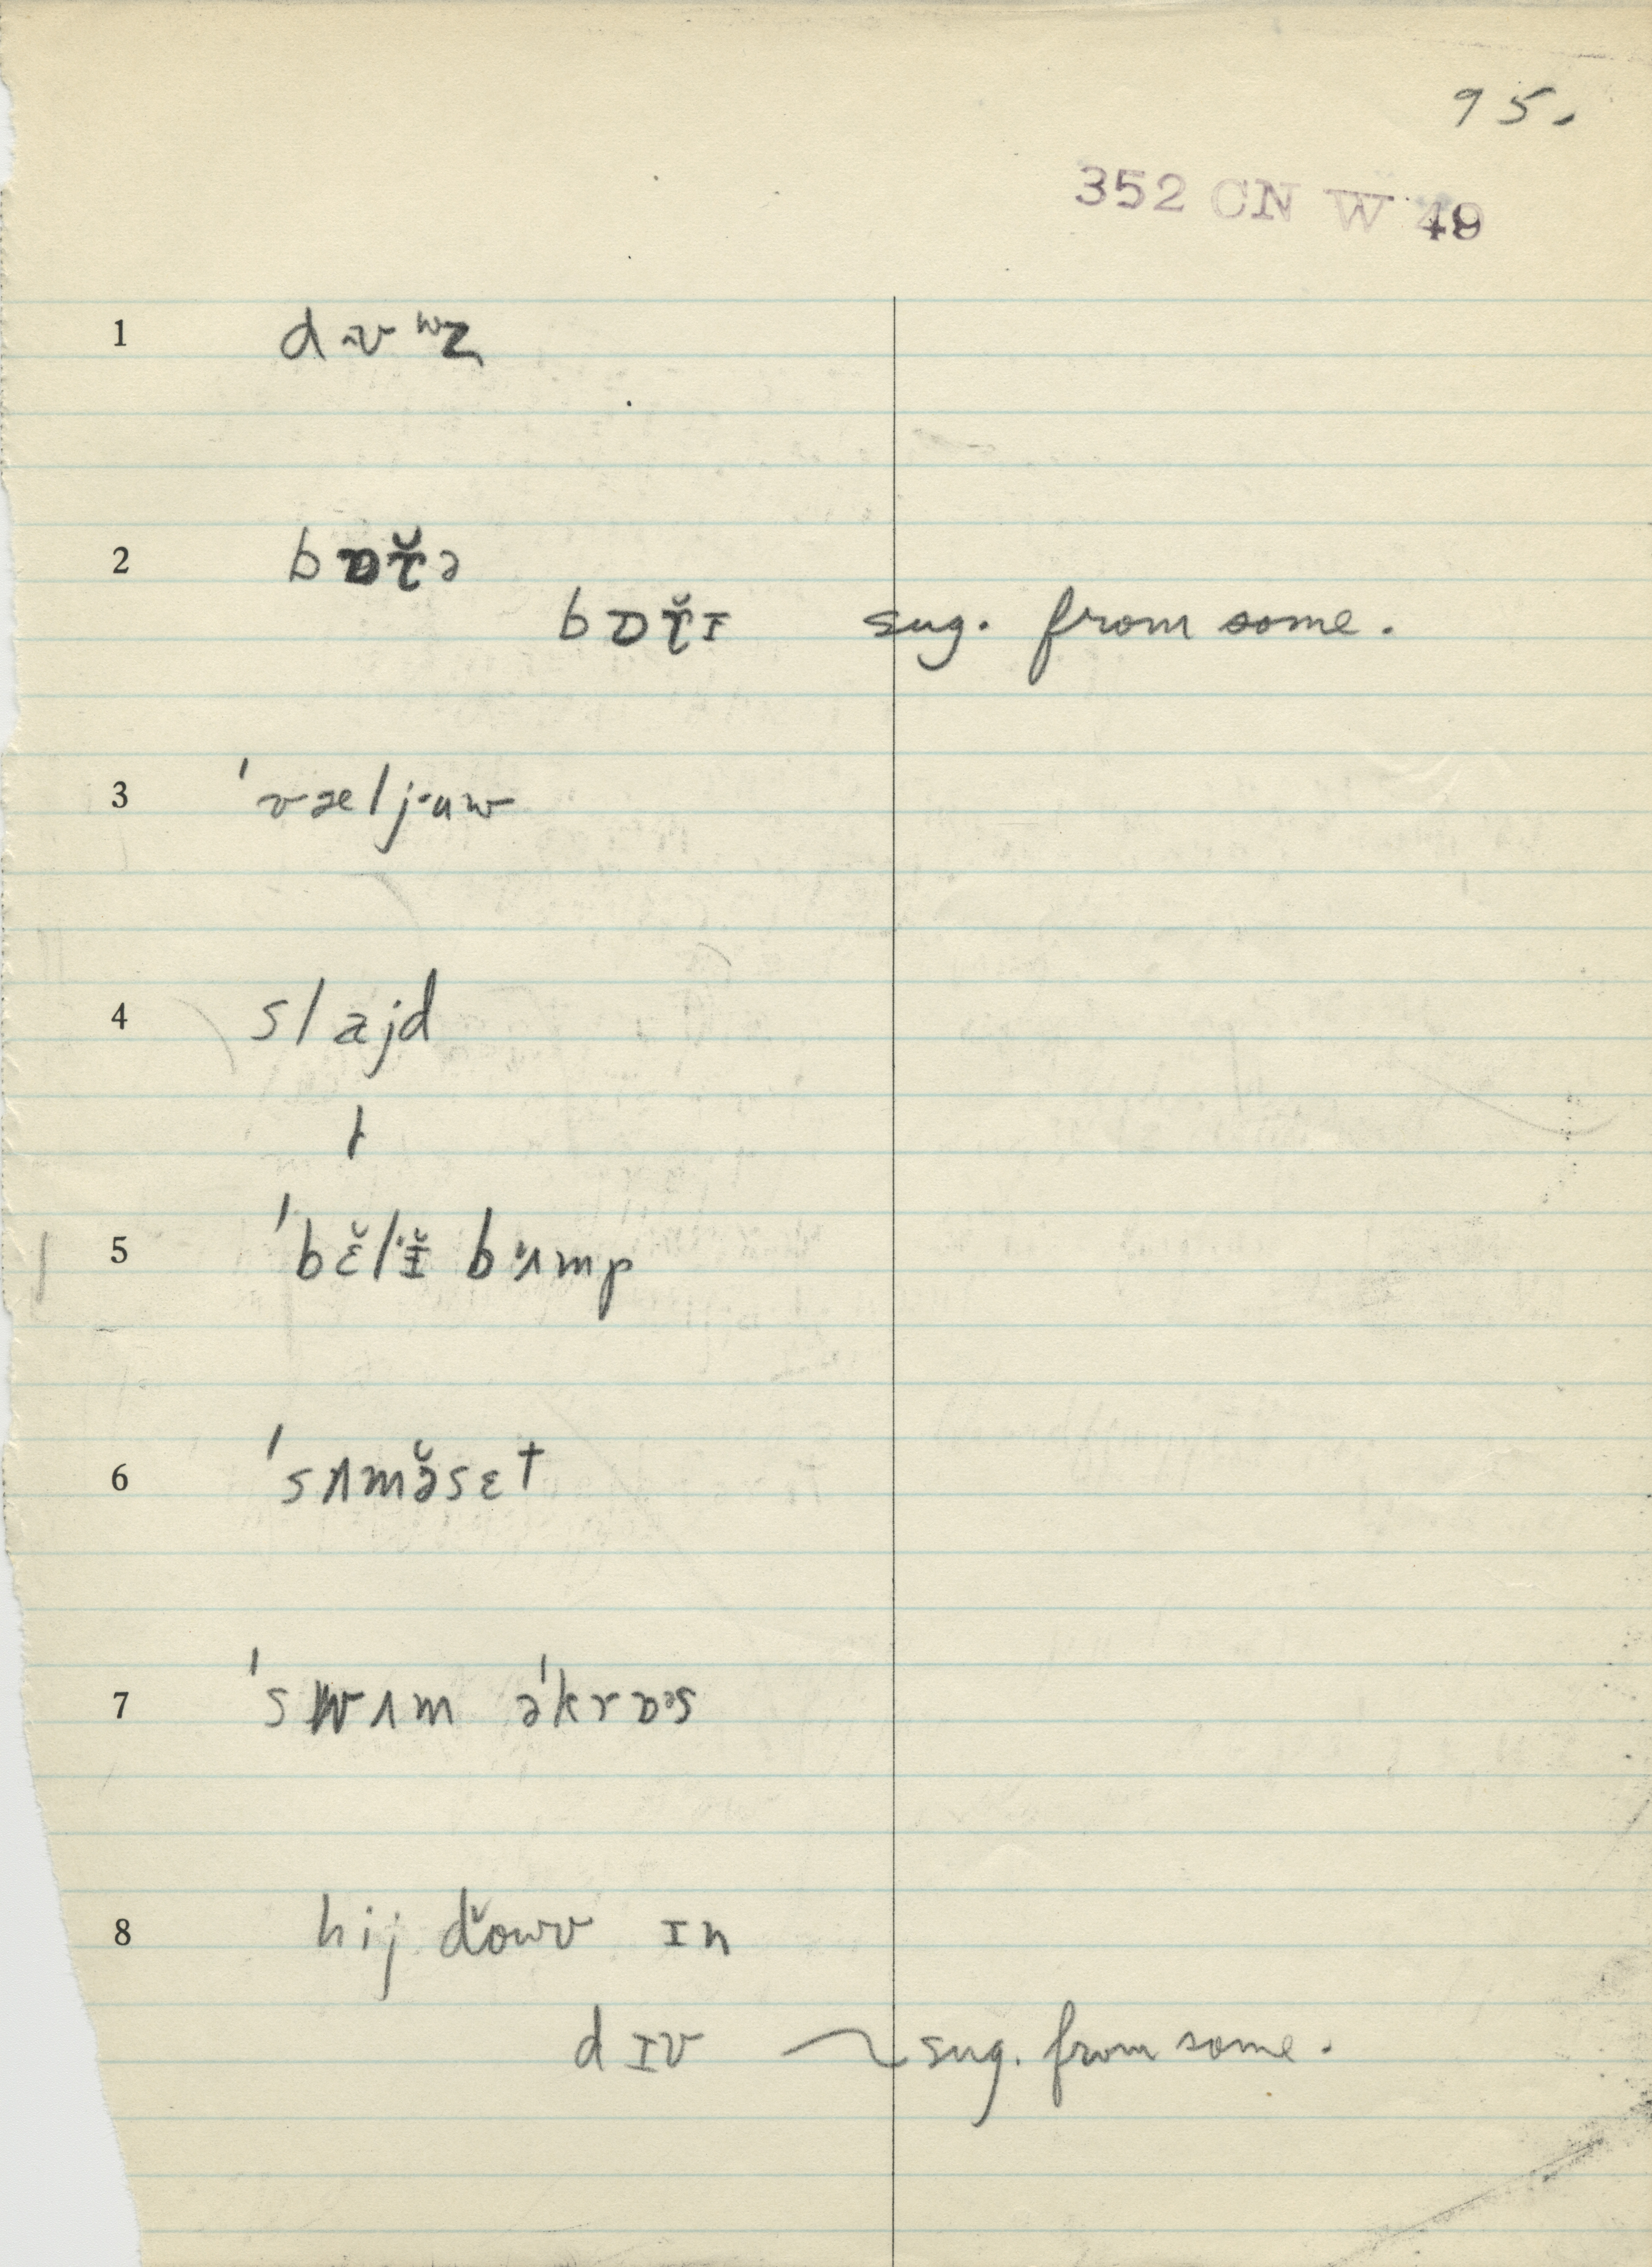 95.
352 CN W 49
1
2 bɒt̬̆ə
bɒt̬̆ɪ sug. from some.
3 'væljuw
4 slajd
5 'bɛ̆lɪ̆ bʌmp
6 'sʌmə̆sɛt
7 'swʌm ə'krɒəs
8 hij dowv ɪn
dɪv ~ sug. from some.